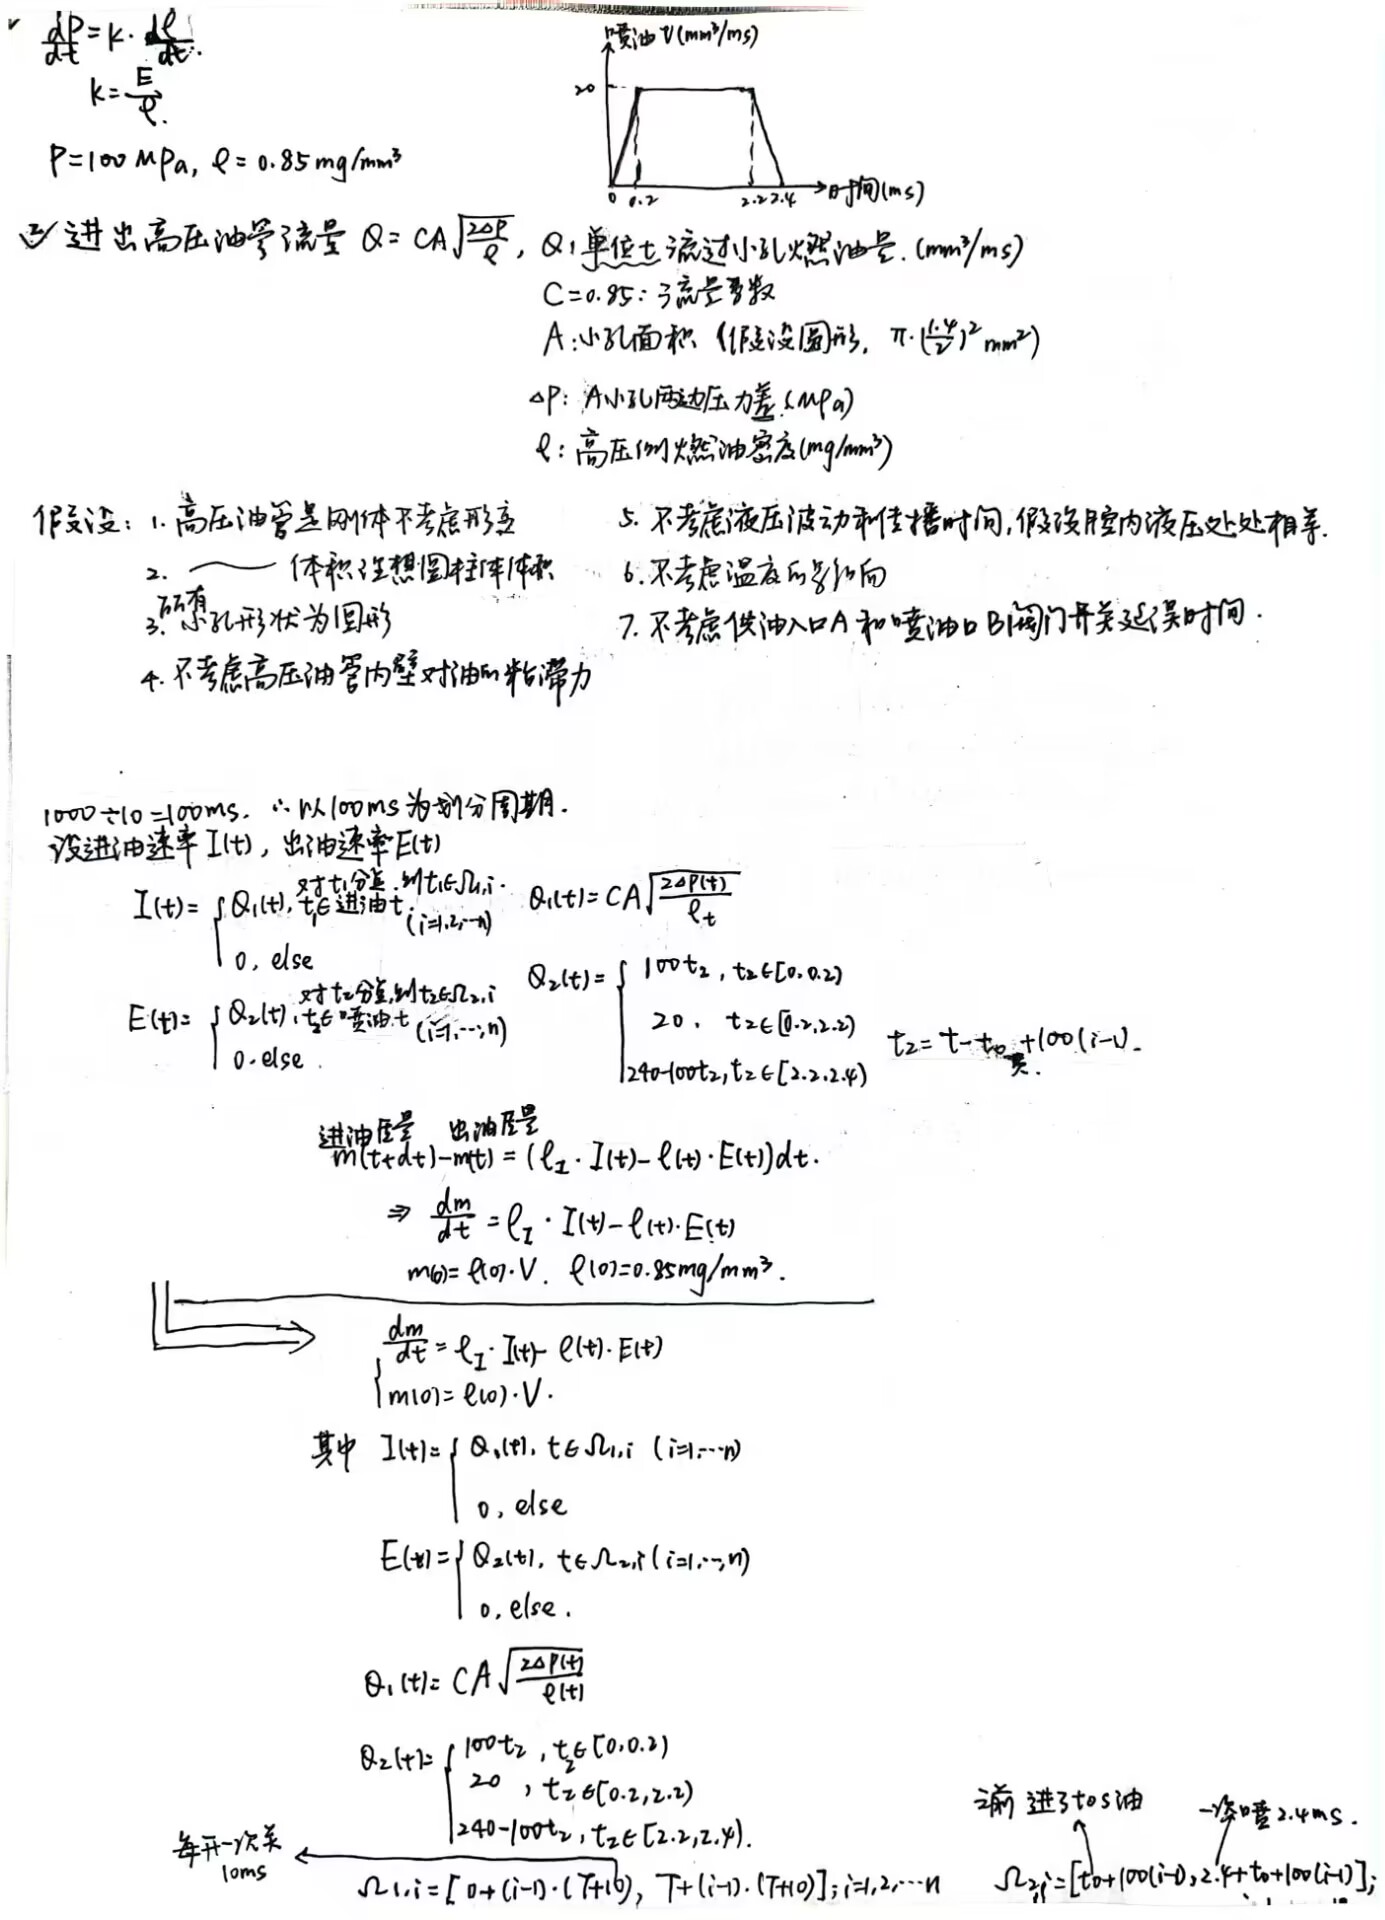 dP/dt = k · dρ/dt.
k = E/ρ.
P=100 MPa, ρ= 0.85 mg/mm³
喷油 v(mm³/ms)
20
0 0.2 2.2 2.4 时间(ms)
进出高压油管流量 Q = CA√(2ΔP/ρ), Q: 单位t流过小孔燃油量. (mm³/ms)
C=0.85: 流量系数
A: 小孔面积 (假设圆形, π·(1.4/2)² mm²)
ΔP: A小孔两边压力差 (MPa)
ρ: 高压侧燃油密度(mg/mm³)
假设: 1. 高压油管是刚体不考虑形变
2. —— 体积理想圆柱体体积
3. 所有小孔形状为圆形
4. 不考虑高压油管内壁对油的粘滞力
5. 不考虑液压波动和传播时间, 假设腔内液压处处相等.
6. 不考虑温度的影响
7. 不考虑供油入口A和喷油口B阀门开关延误时间.
1000÷10=100ms. ∴以100ms为划分周期.
设进油速率 I(t), 出油速率 E(t)
I(t)= { Q₁(t), t₁∈进油t. 对t₁分点, 则t₁∈Ω₁,i. (i=1,2,…n)
0, else
Q₁(t)= CA√(2ΔP(t)/ρt)
E(t)= { Q₂(t), t₂∈喷油t 对t₂分点,则t₂∈Ω₂,i (i=1,…,n)
0. else.
Q₂(t)= { 100t₂, t₂∈[0,0.2)
20, t₂∈[0.2,2.2)
240-100t₂, t₂∈[2.2,2.4)
t₂= t-t₀+100(i-1).
进油质量 出油质量
m(t+dt)-m(t) = (ρI · I(t)-ρ(t)·E(t))dt.
⇒ dm/dt = ρI · I(t)-ρ(t)·E(t)
m(0)= ρ(0)·V. ρ(0)=0.85mg/mm³.
{ dm/dt = ρI · I(t)- ρ(t)·E(t)
m(0)= ρ(0)·V.
其中 I(t)= { Q₁(t), t∈Ω₁,i (i=1,…n)
0, else
E(t)= { Q₂(t), t∈Ω₂,i (i=1,…,n)
0, else.
Q₁(t)= CA√(2ΔP(t)/ρ(t))
Q₂(t)= { 100t₂, t₂∈[0,0.2)
20, t₂∈[0.2,2.2)
240-100t₂, t₂∈[2.2,2.4).
每开一次关
10ms
Ω₁,i = [0+(i-1)·(T+10), T+(i-1)·(T+10)]; i=1,2,…n
之前进了t₀s油 一次喷2.4ms.
Ω₂,i = [t₀+100(i-1), 2.4+t₀+100(i-1)];